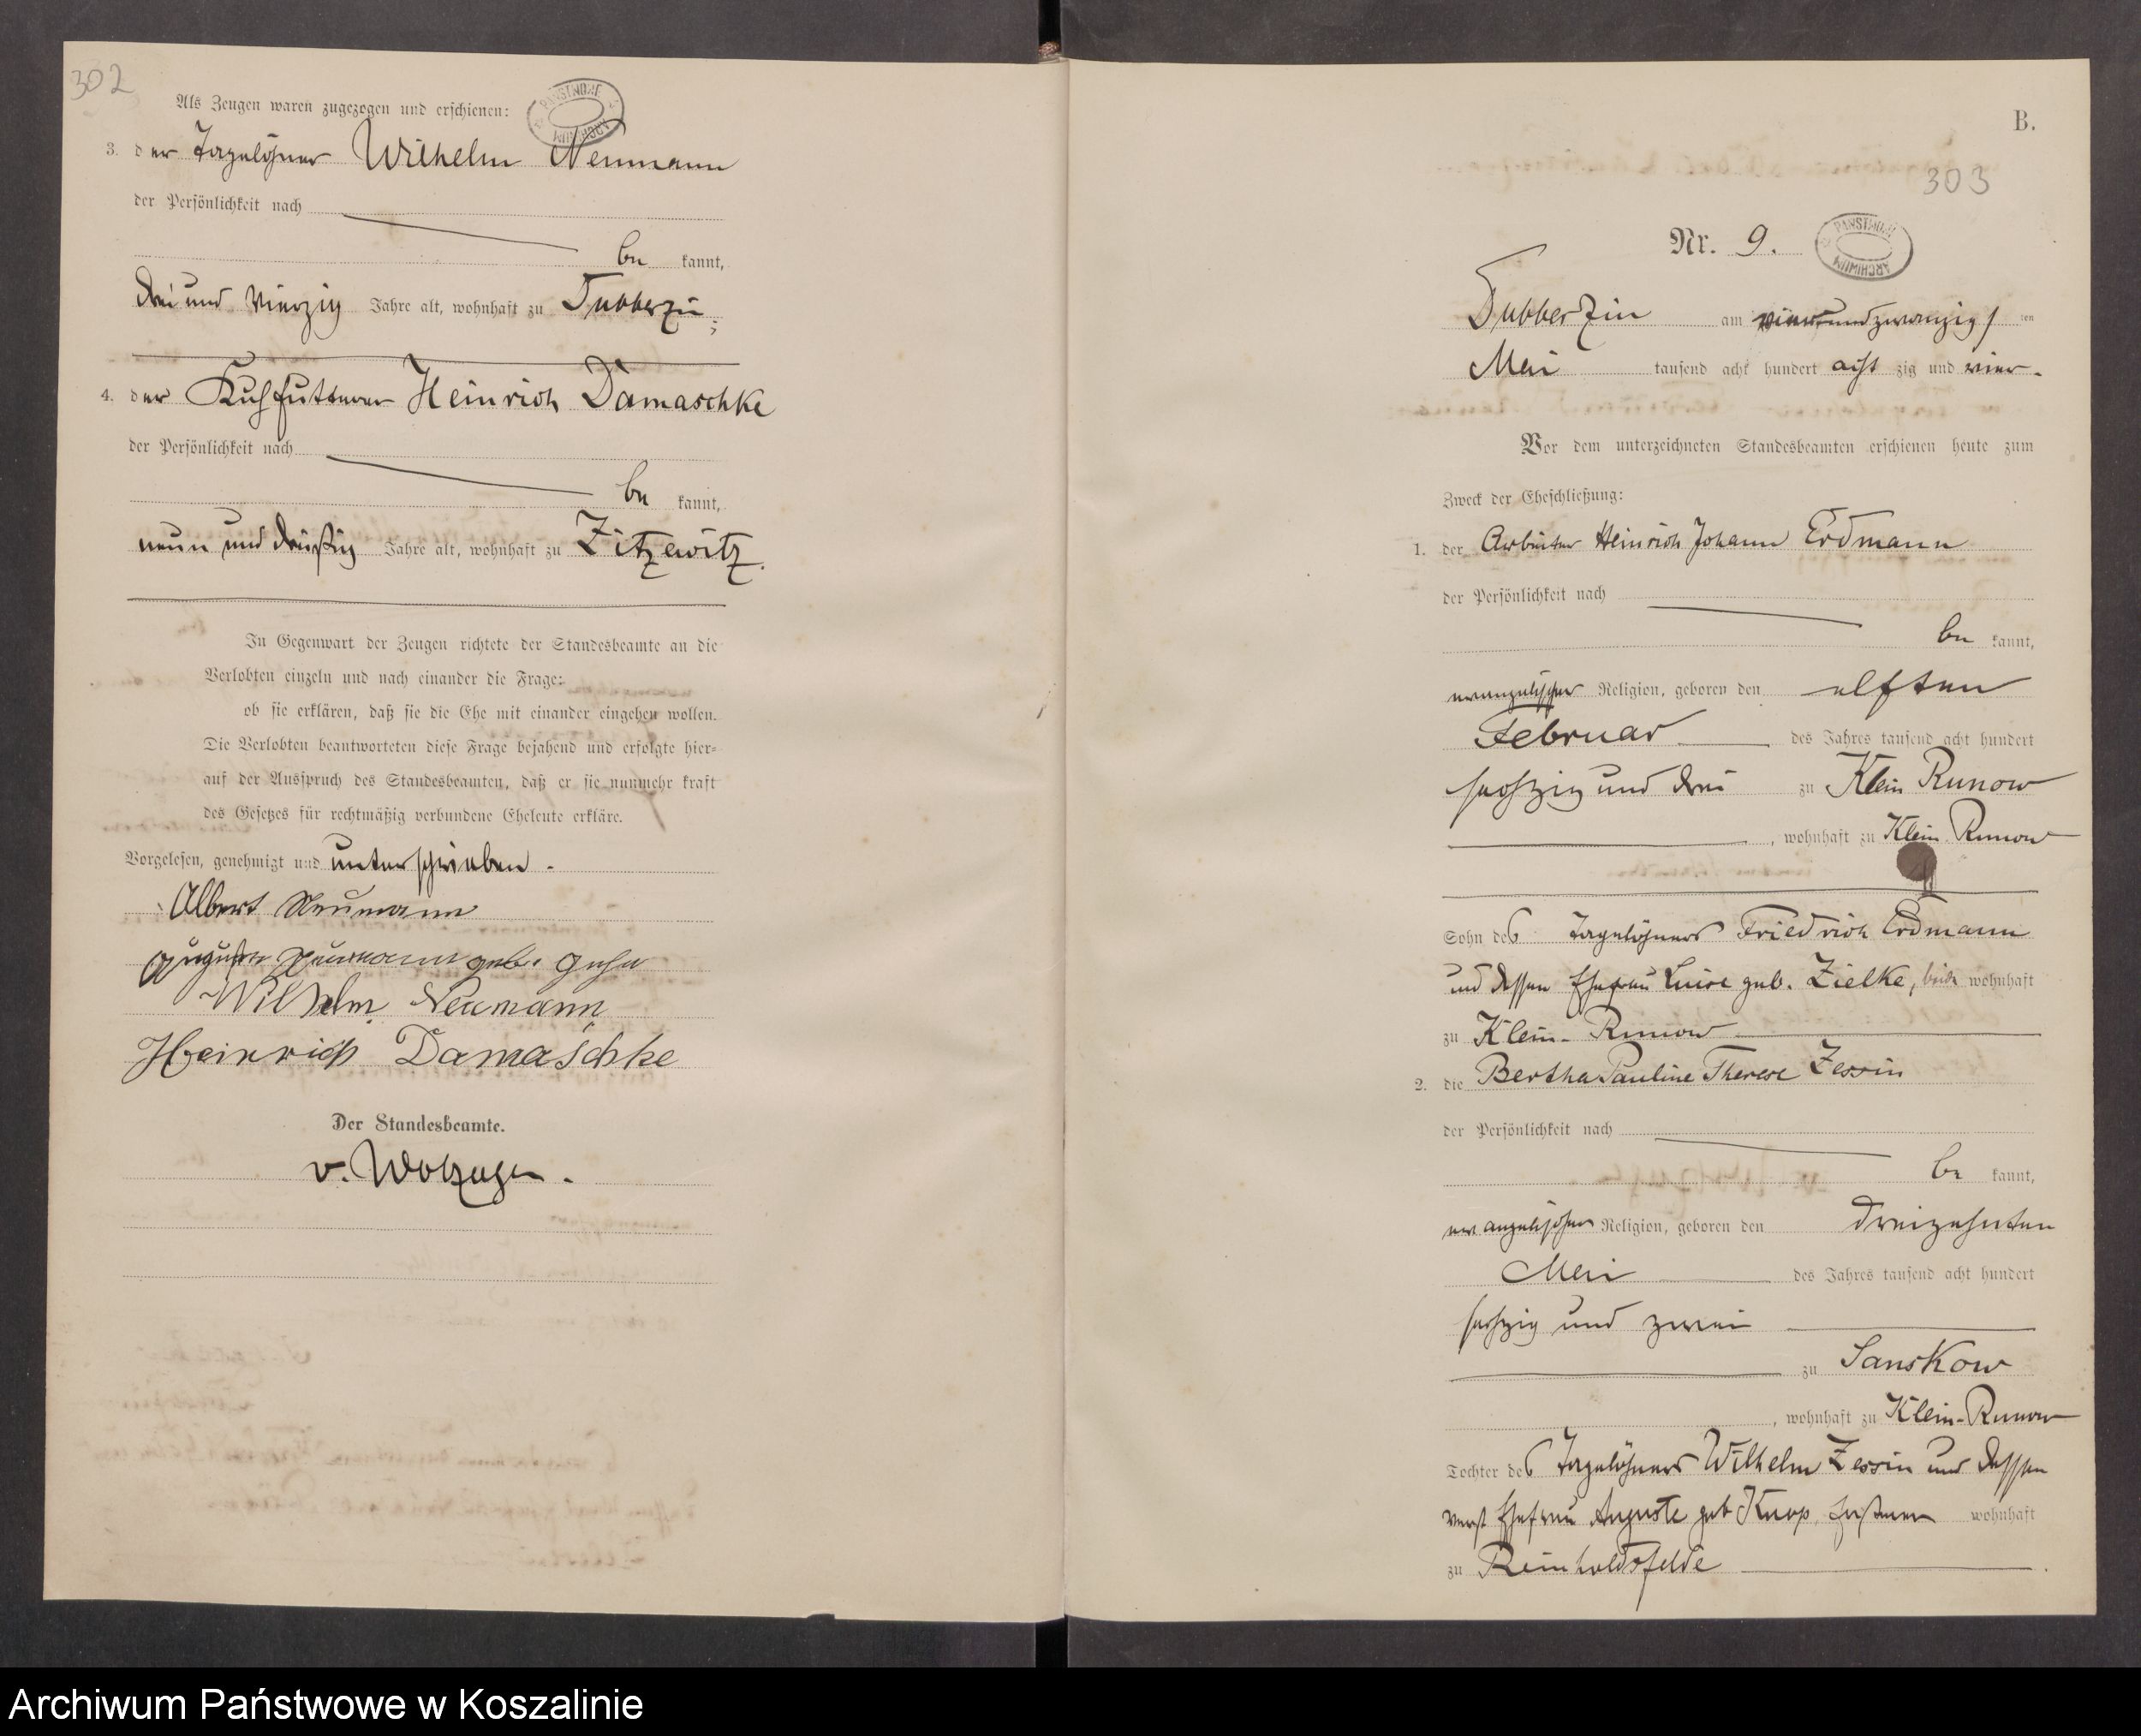 302
Als Zeugen waren zugezogen und erschienen:
PAŃSTWOWE ARCHIWUM
3. der Tagelöhner Wilhelm Neumann
der Persönlichkeit nach
be kannt,
drei und vierzig Jahre alt, wohnhaft zu Dubberzin;
4. der Kuhfütterer Heinrich Damaschke
der Persönlichkeit nach
be kannt,
neun und dreißig Jahre alt, wohnhaft zu Zitzewitz.
In Gegenwart der Zeugen richtete der Standesbeamte an die
Verlobten einzeln und nach einander die Frage:
ob sie erklären, daß sie die Ehe mit einander eingehen wollen.
Die Verlobten beantworteten diese Frage bejahend und erfolgte hier-
auf der Ausspruch des Standesbeamten, daß er sie nunmehr kraft
des Gesetzes für rechtmäßig verbundene Eheleute erkläre.
Vorgelesen, genehmigt und unterschrieben.
Albert Neumann
Auguste Neumann geb.
Wilhelm Neumann
Heinrich Damaschke
Der Standesbeamte.
v. Wolzogen.
B.
303
Nr. 9.
PAŃSTWOWE ARCHIWUM
Dubberzin am vierundzwanzig/ten
Mai tausend acht hundert acht zig und vier.
Vor dem unterzeichneten Standesbeamten erschienen heute zum
Zweck der Eheschließung:
1. der Arbeiter Heinrich Johann Erdmann
der Persönlichkeit nach
be kannt,
evangelischer Religion, geboren den elften
Februar des Jahres tausend acht hundert
sechszig und drei zu Klein Runow
, wohnhaft zu Klein Runow
Sohn des Tagelöhners Friedrich Erdmann
und dessen Ehefrau Luise geb. Zielke, beide wohnhaft
zu Klein-Runow
2. die Bertha Pauline Therese Zessin
der Persönlichkeit nach
be kannt,
evangelischer Religion, geboren den dreizehnten
Mai des Jahres tausend acht hundert
sechszig und zwei
zu Sanskow
, wohnhaft zu Klein-Runow
Tochter des Tagelöhners Wilhelm Zessin und dessen
verst Ehefrau Auguste geb Knop, wohnhaft
zu Reinholdsfelde
Archiwum Państwowe w Koszalinie